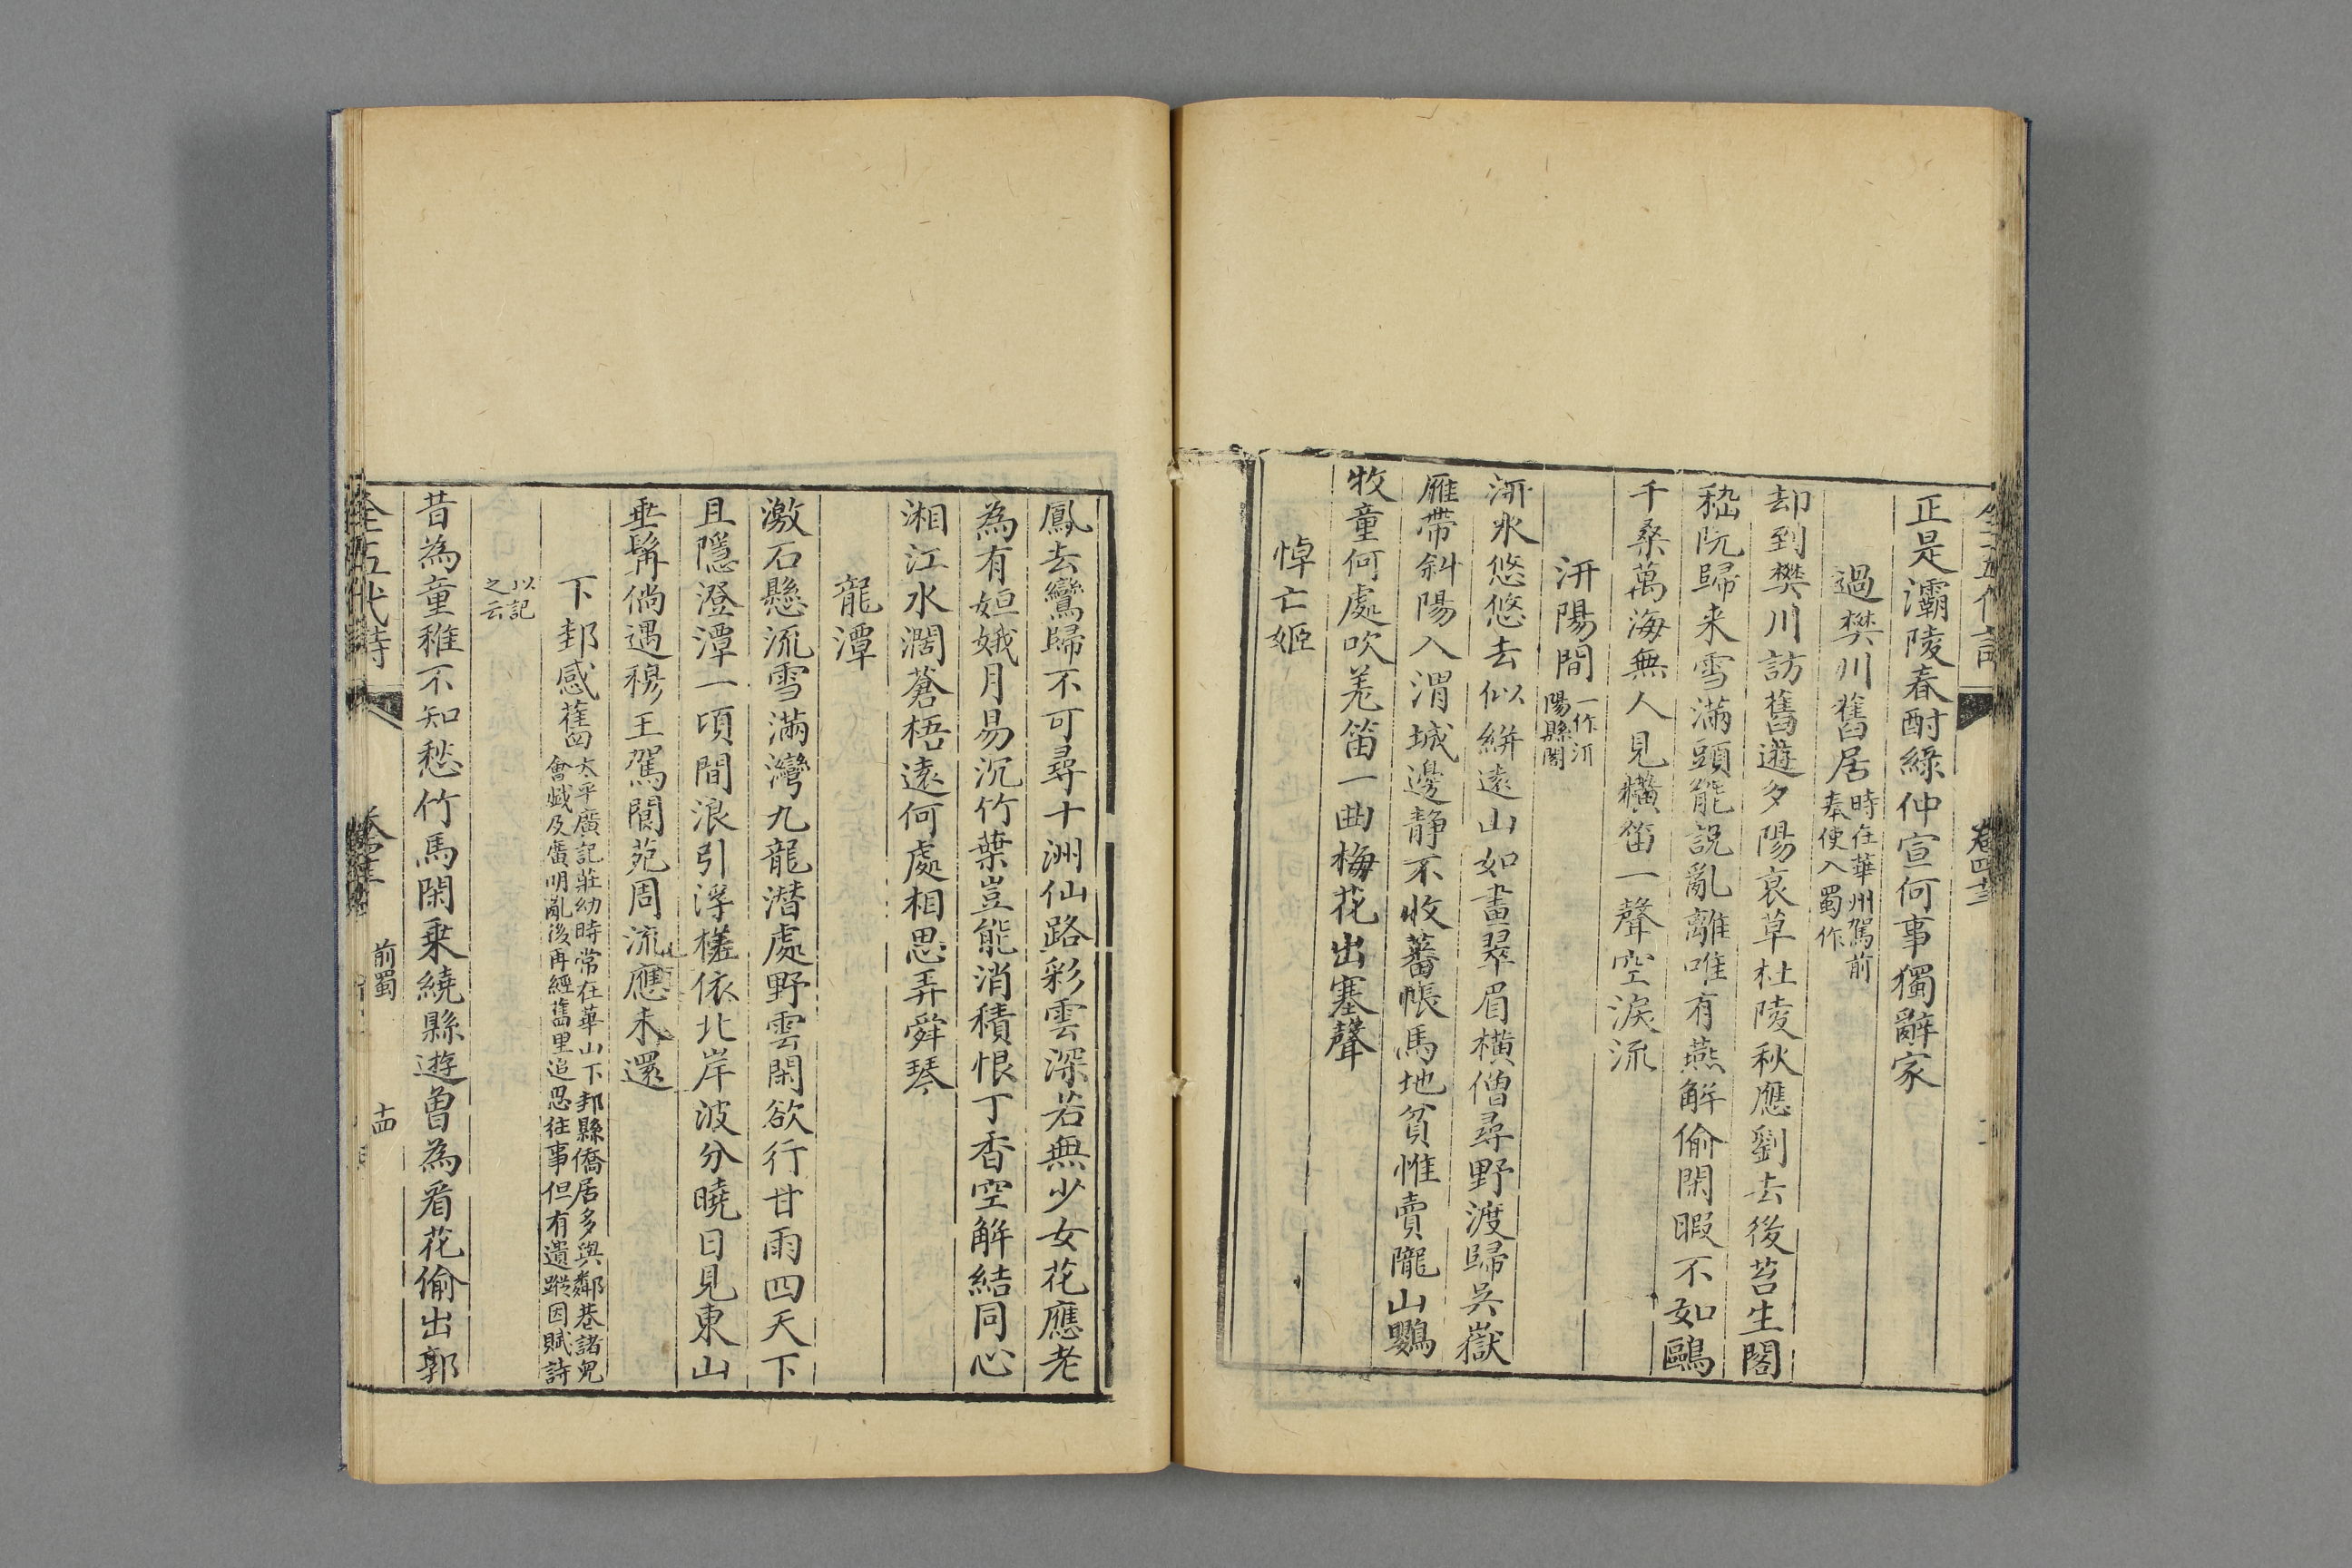 正是灞陵春酎綠仲宣何事獨辭家
過樊川舊居時在華州駕前奉使入蜀作
却到樊川訪舊遊夕陽衰草杜陵秋應劉去後苔生閣
嵇阮歸来雪滿頭能說亂離唯有燕解偷閑暇不如鷗
千桑萬海無人見橫笛一聲空淚流
汧陽間一作汧陽縣閣
汧水悠悠去似絣遠山如畫翠眉橫僧尋野渡歸吳嶽
雁帶斜陽入渭城邊静不收蕃帳馬地貧惟賣隴山鸚
牧童何處吹羌笛一曲梅花出塞聲
悼亡姬
鳳去鸞歸不可尋十洲仙路彩雲深若無少女花應老
為有姮娥月易沉竹葉豈能消積恨丁香空解結同心
湘江水濶蒼梧遠何處相思弄舜琴
龍潭
激石懸流雪滿灣九龍潛處野雲閑欲行甘雨四天下
且隱澄潭一頃間浪引浮槎依北岸波分曉日見東山
垂髯倘遇穆王駕閬苑周流應未還
下邽感舊太平廣記莊幼時常在華山下邽縣僑居多與鄰巷諸兒會戱及廣明亂後再經舊里追思往事但有遺蹤因賦詩
以記之云
昔為童稚不知愁竹馬閑乗繞縣遊曾為看花偷出郭
全五代詩
前蜀
十四